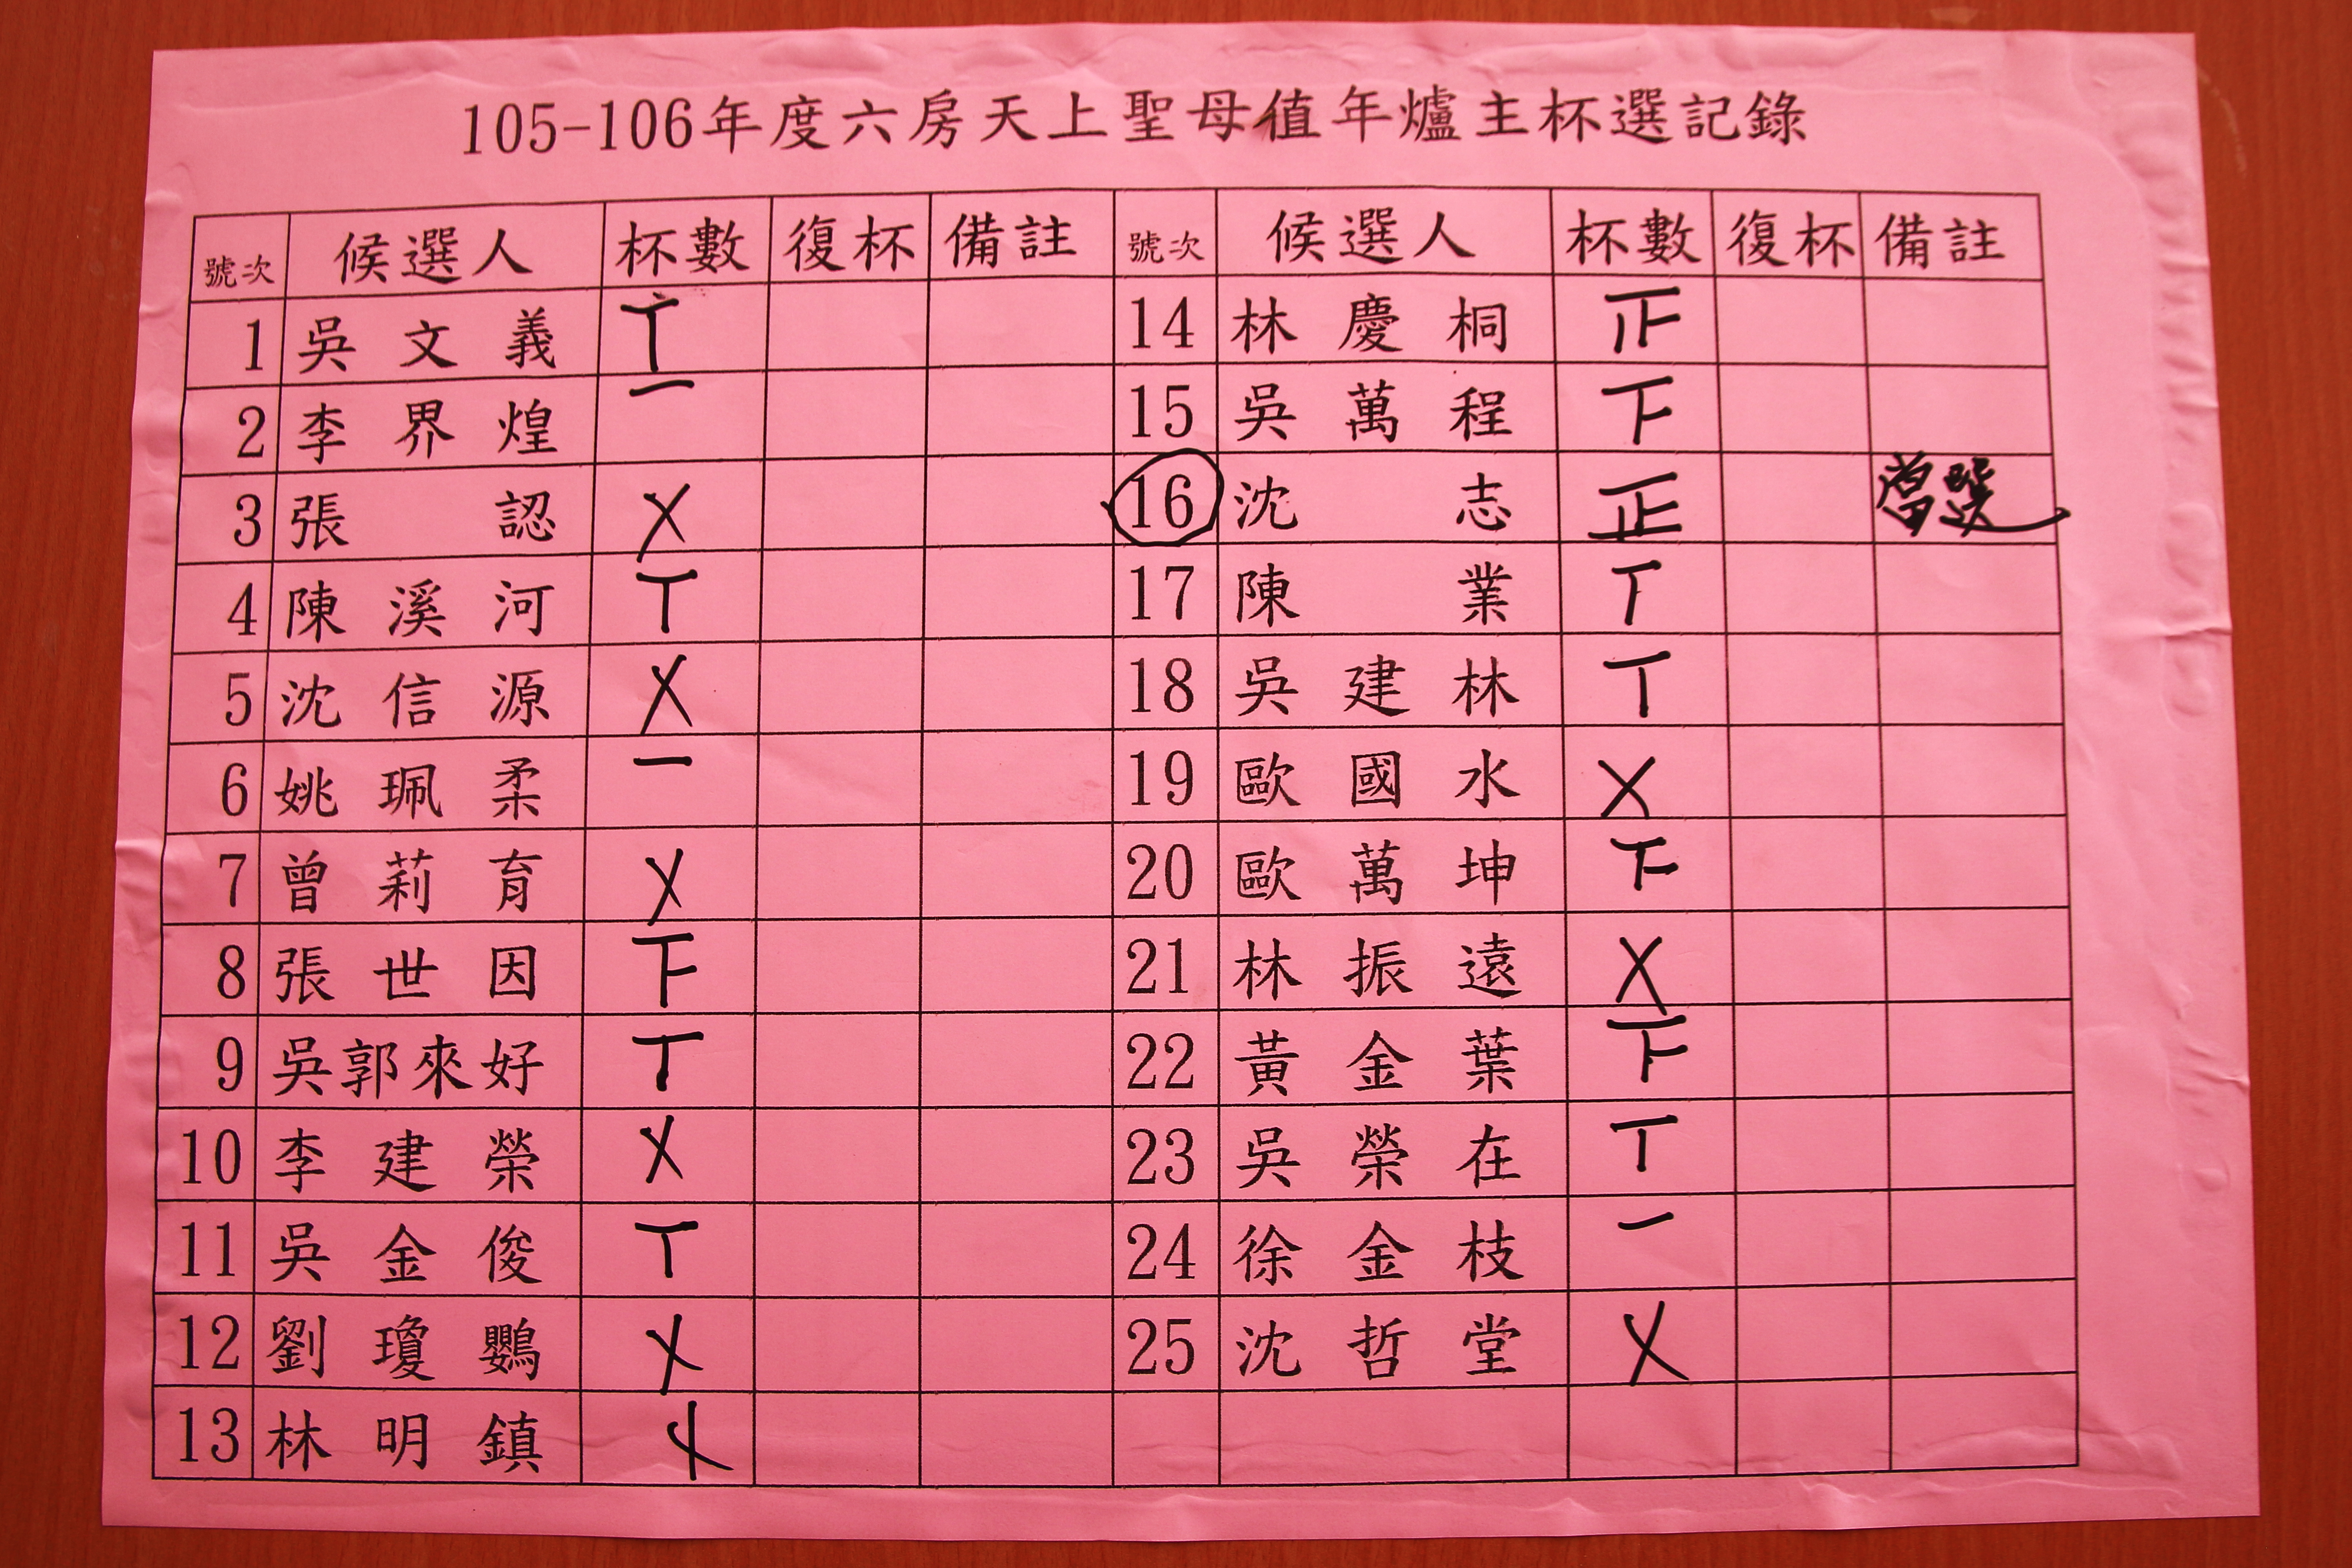 105-106年度六房天上聖母值年爐主杯選記錄
號次 候選人 杯數 復杯 備註 號次 候選人 杯數 復杯 備註
1 吳文義 丅 14 林慶桐
2 李界煌 一 15 吳萬程 下
3 張認 X 16 沈志 正 當選
4 陳溪河 丅 17 陳業 丅
5 沈信源 X 18 吳建林 丅
6 姚珮柔 一 19 歐國水 X
7 曾莉育 X 20 歐萬坤 下
8 張世因 下 21 林振遠 X
9 吳郭來好 丅 22 黃金葉 下
10 李建榮 X 23 吳榮在 丅
11 吳金俊 丅 24 徐金枝 一
12 劉瓊鸚 X 25 沈哲堂 X
13 林明鎮 X